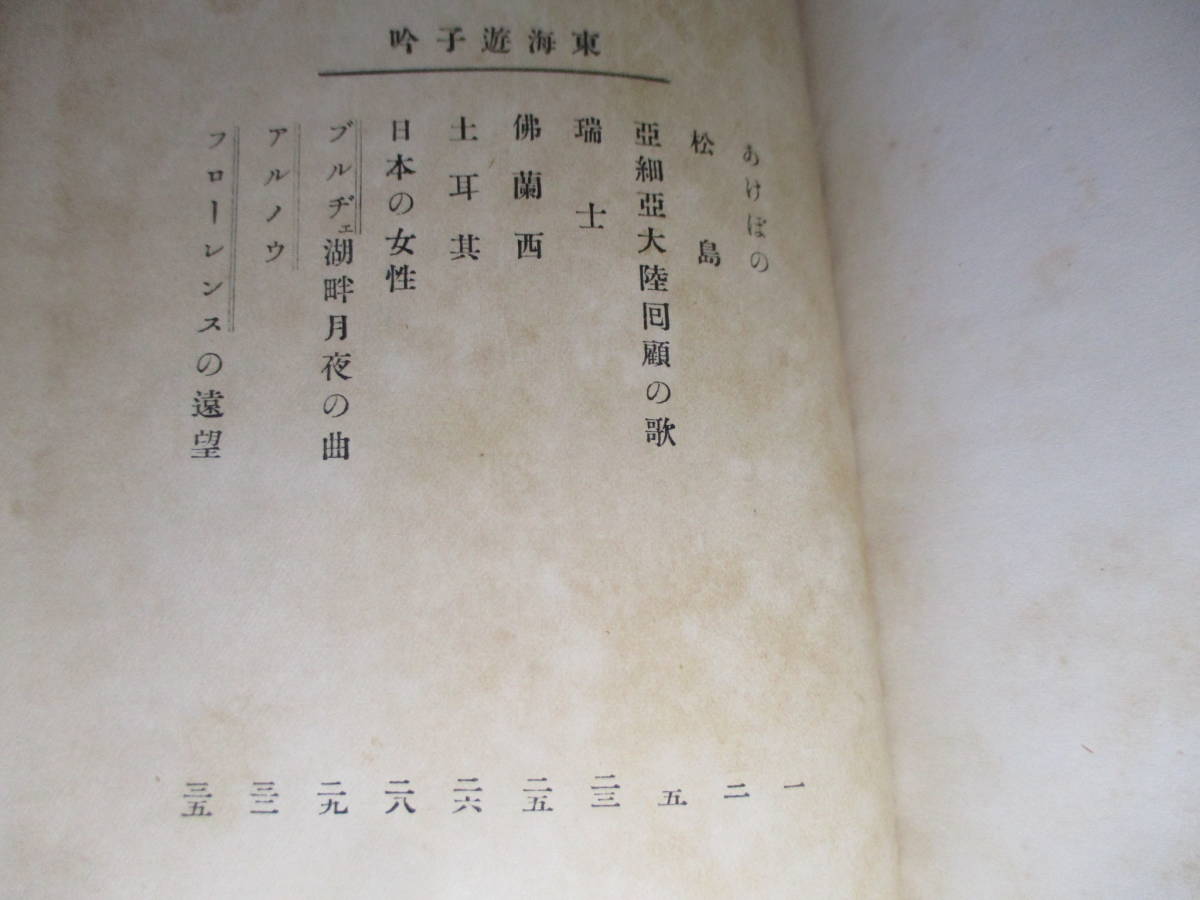 東海遊子吟
あけぼの 一
松島 二
亞細亞大陸囘顧の歌 五
瑞士 二三
佛蘭西 二五
土耳其 二六
日本の女性 二八
ブルヂェ湖畔月夜の曲 二九
アルノウ 三二
フローレンスの遠望 三五